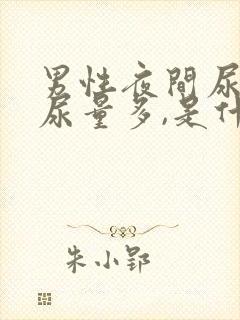 男性夜間尿
尿量多,是什
朱小郢